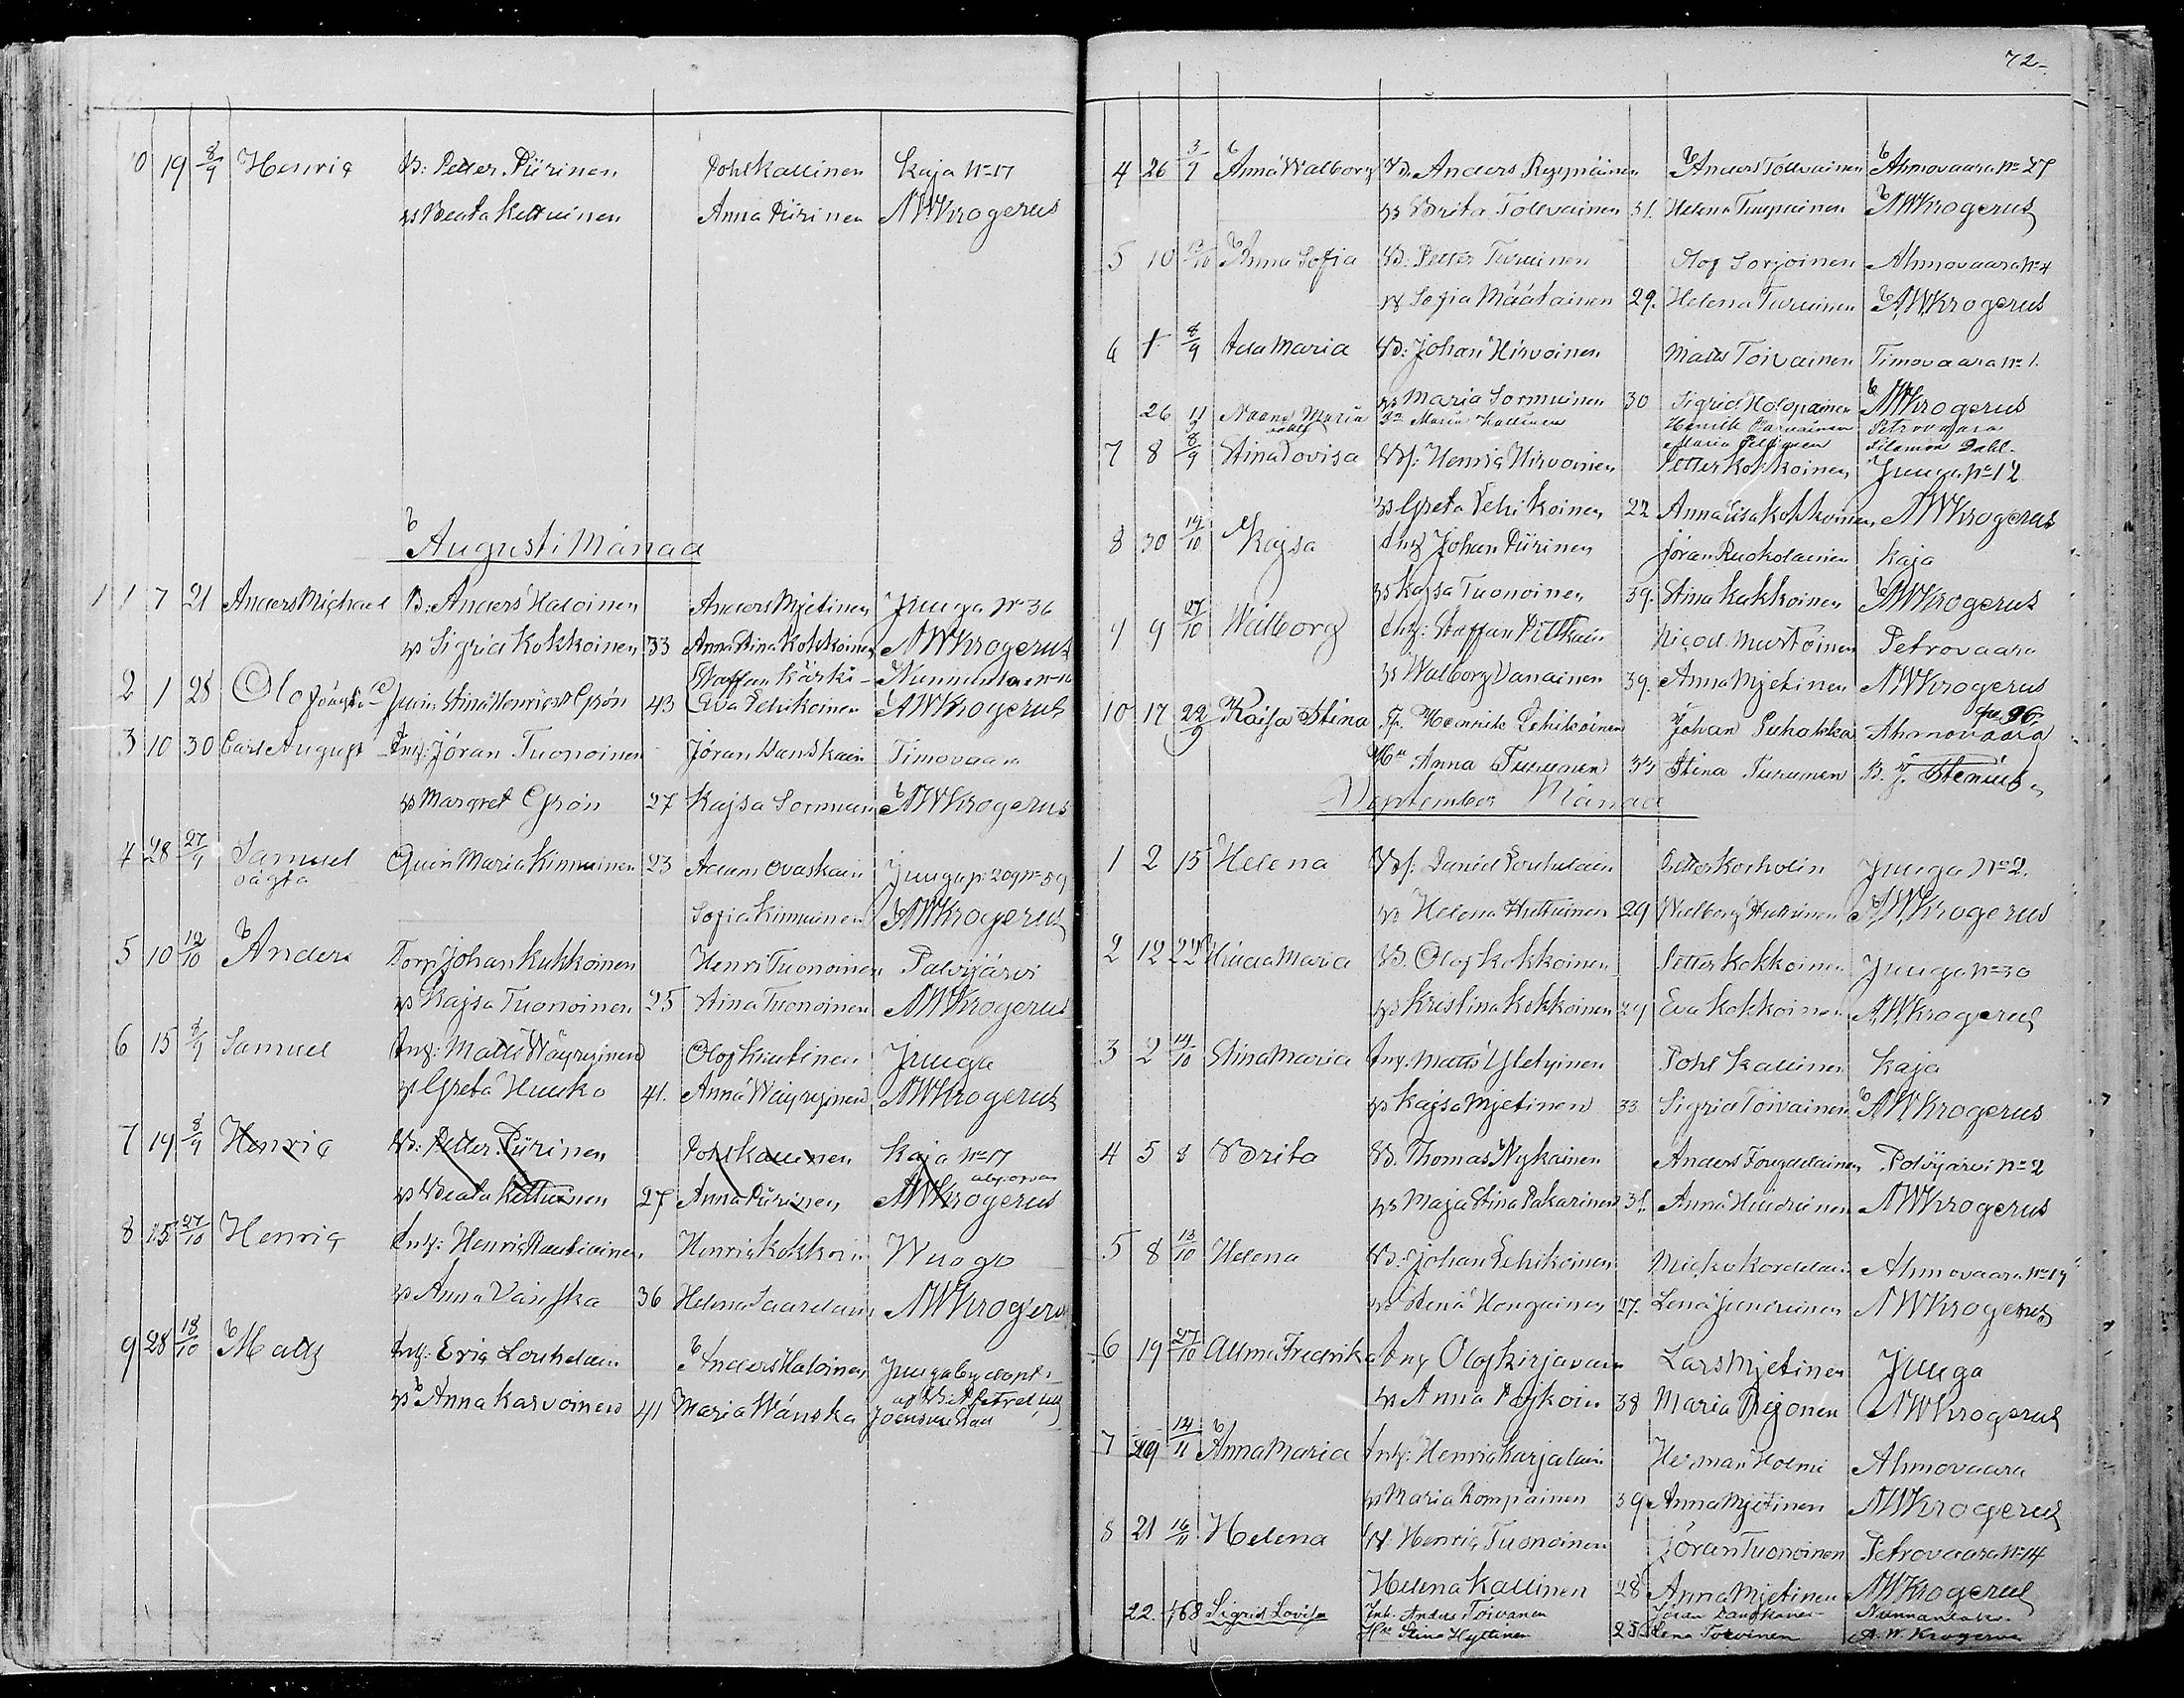 10 19 8/9 Henric B: Petter Piirinen Pohl Kallinen Kaja No 17
hs Beata Kettuinen Anna Piirinen AWKrogerus
Augusti Månad
1 1 7 21 Anders Michael B. Anders Haloinen Anders Mjetinen Juuga No 36
hs Sigrid Kokkoinen 33 Anna Stina Kokkoinen AWKrogerus
Staffan Kärki Nunnanla
2 1 28 Olof oägta Stina Grön 43 Eva Lehikoinen AWKrogerus
3 10 30 Carl August Inh: Jöran Tuonoinen Jöran Danskain Timovaara
hs Margret Grön 27 Kajsa Sormuin AWKrogerus
4 28 27/9 Samuel Qvin Maria Kinnuinen 23 Adam Ovaskain Juuga
oägta Sofia Kinnuinen AWKrogerus
5 10 12/10 Anders Torp Johan Kukkoinen Henric Tuonoinen Polvijärvi
hs Kajsa Tuonoinen 25 Stina Tuonoinen AWKrogerus
6 15 8/9 Samuel Inh: Matts Wäyryinen Olof Kuutinen Juuga
hs Greta Huuko 41. Anna Wäyryinen AWKrogerus
7 19 8/9 Henric B: Petter Piirinen Pohl Kallinen Kaja No 17
hs Beata Kettuinen 27 Anna Piirinen AWKrogerus
8 15 27/10 Henric Inh: Henric Rautiainen Henric Kokkoin Wuogo
hs Anna Väniska 36 Helena Saarelain AWKrogerus
9 28 18/10 Matts Inh: Eric Louhelain Anders Haloinen Juuga by döpt
hs Anna Karvoinen 41 Maria Wänska Joensuu stad
72
4 26 3/9 Anna Walborg B. Anders Reppnäinen Anders Tolvainen Ahmovaara No 27
hs Brita Tolvainen 31. Helena Timpainen AWKrogerus
5 10 13/10 Anna Sofia B: Petter Turuinen Olof Sorjoinen Ahmovaara No 4
hs Sofia Määtainen 29. Helena Turuinen AWKrogerus
6 1 8/9 Ada Maria B: Johan Hirvoinen Matts Toivainen Timovaara No 1.
hs Maria Sormuinen 30 Sigrid Holopainen AWKrogerus
26 11/9 Maria Maria Kallinen Henrik Petrovaara
Maria Dahl.
7 8 8/9 Stina Lovisa Bf: Henric Hirvoinen Petter Kokkoinen Juuga No 12
hs Greta Lehikoinen 22 Anna Lisa Kokkoinen AWKrogerus
8 30 14/10 Kajsa Inh Johan Piirinen Jöran Ruokolainen Kaja
hs Kajsa Tuonoinen 39. Stina Kukkoinen AWKrogerus
9 9 27/10 Walborg Inh: Staffan Pitkäin Nicod. Mustoinen Petrovaara
hs Walborg Vanainen 39. Anna Mjetinen AWKrogerus
10 17 22/9 Kaisa Stina Henrik Lehikoinen Johan Puhakka Ahmovaara
Anna Turunen 33 Stina Turunen B. J. Stenius
September Månad
1 2 15 Helena Bf. Daniel Louhelain Petter Korholin Juuga No 2.
hs Helena Huttuinen 29 Walborg Huttuinen AWKrogerus
2 12 22 Hilda Maria B. Olof Kokkoinen Petter Kokkoinen Juuga No 30
hs Kristina Kokkoinen 29 Eva Kokkoinen AWKrogerus
3 2 14/10 Stina Maria Inh. Matts Yletyinen Pohl Kallinen Kaja
hs Kajsa Mjetinen 33 Sigrid Toivainen AWKrogerus
4 5 8 Brita B. Thomas Nykainen Anders Polvijärvi No 2
hs Maja Stina Pakarinen 31. Anna AWKrogerus
5 8 13/10 Helena B: Johan Lehikoinen Micko Kordelain Ahmovaara No 19
hs Stina Honguinen 27. Lena AWKrogerus
6 19 27/10 Alma Fredrika Inh Olof Kirjavain Lars Mjetinen Juuga
hs Anna Pajkoin 38 Maria Pejonen AWKrogerus
7 29 14/11 Anna Maria Inh: Henric Karjalain Herman Holmi Ahmovaara
hs Maria Rompainen 39 Anna Mjetinen AWKrogerus
8 21 16/11 Helena Henric Tuonoinen Jöran Tuonoinen Petrovaara No 14
Helena Kallinen 28 Anna Mjetinen AWKrogerus
22. Sigrid Lovisa Inh. Anders Toivanen Jöran Danskanen Nunnanlaks.
Stina Hyttinen 25 Lena Toivinen A. W. Krogerus